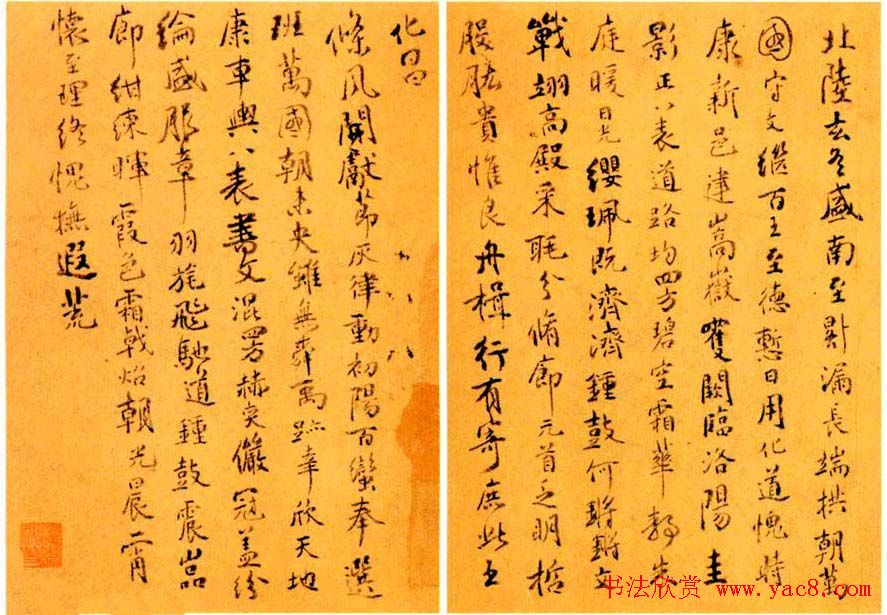 北陸玄冬盛南至晷漏長端拱朝萬
國守文繼百王至德慙日用化道愧時
康新邑建嵩嶽雙闕臨洛陽圭
影正八表道路均四方碧空霜華靜朱
庭暖日光纓珮既濟濟鍾鼓何鏘鏘文
戟翊高殿采眊分脩廊元首乏明哲
股肱貴惟良舟楫行有寄庶此王
化昌
條風開獻節灰律動初陽百蠻奉選
班萬國朝未央雖無舜禹跡幸欣天地
康車輿八表書文混四方赫奕儼冠盖紛
綸盛服章羽旄飛馳道鍾鼓震嵒
廊組練暉霞色霜戟炤朝光晨宵
懷至理終愧撫遐荒
书法欣赏 www.yac8.com